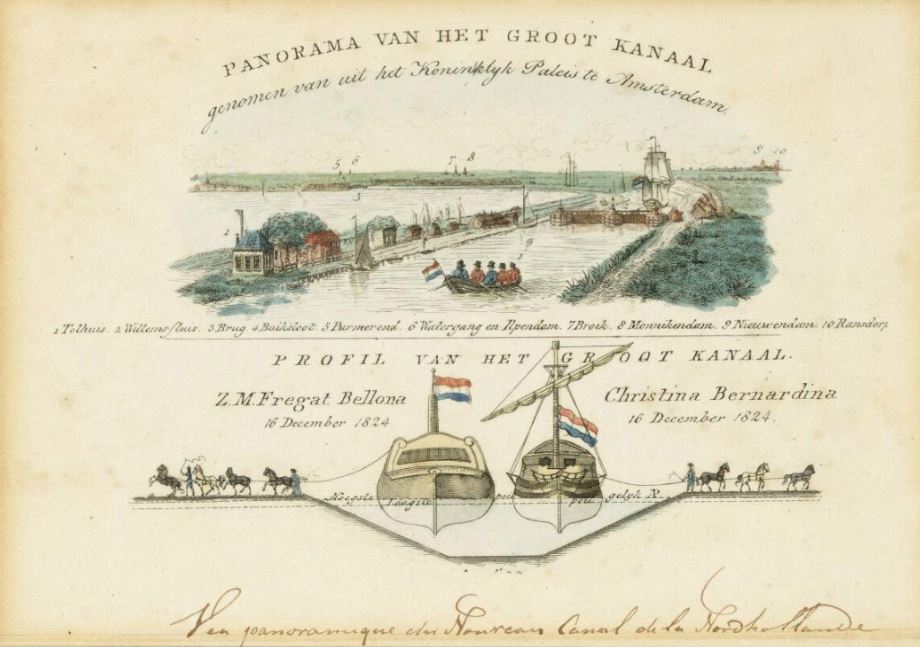 PANORAMA VAN HET GROOT KANAAL
genomen van uit het Koninklyk Paleis te Amsterdam.
5 6 7 8 9 10
3
1
1 Tolhuis. 2 Willemssluis. 3 Brug. 4 Buiksloot. 5 Purmerend. 6 Watergang en Ilpendam. 7 Broek. 8 Monnikendam. 9 Nieuwendam. 10 Ransdorp
PROFIL VAN HET GROOT KANAAL.
Z.M. Fregat Bellona
16 December 1824.
Christina Bernardina
16 December 1824.
Hoogste peil gelyk A.P.
Laagste peil
Vue panoramique du Nouveau Canal de la Nordhollande